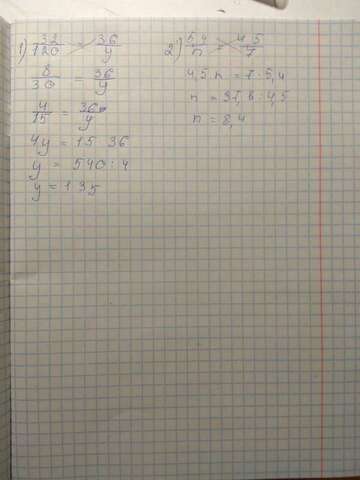 1) 32/120 = 36/y
8/30 = 36/y
4/15 = 36/y
4y = 15 · 36
y = 540 : 4
y = 135
2) 5,4/n = 4,5/7
4,5 n = 7 · 5,4
n = 37,8 : 4,5
n = 8,4